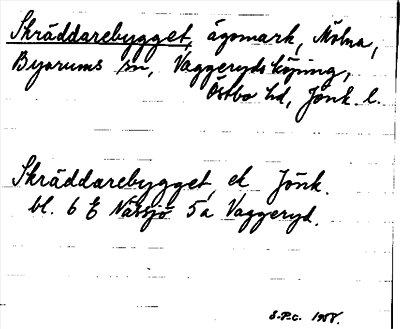 Skräddarebygget, ägomark, Mölna,
Byarums sn, Vaggeryds köping,
Östbo hd, Jönk. l.
Skräddarebygget, ek Jönk.
bl. 6 E Nässjö 5a Vaggeryd.
S.P.C. 1958.